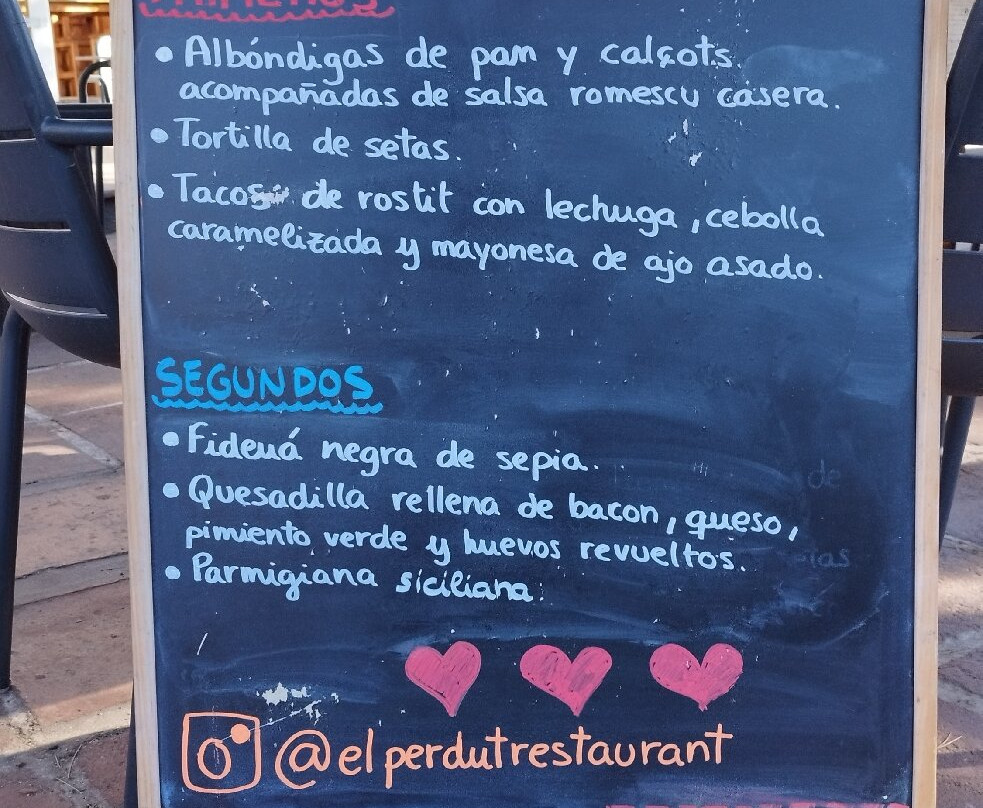 • Albóndigas de pam y calçots.
acompañadas de salsa romescu casera.
• Tortilla de setas.
• Tacos de rostit con lechuga, cebolla
caramelizada y mayonesa de ajo asado.
SEGUNDOS
• Fideuá negra de sepia.
• Quesadilla rellena de bacon, queso,
pimiento verde y huevos revueltos.
• Parmigiana siciliana.
@elperdutrestaurant